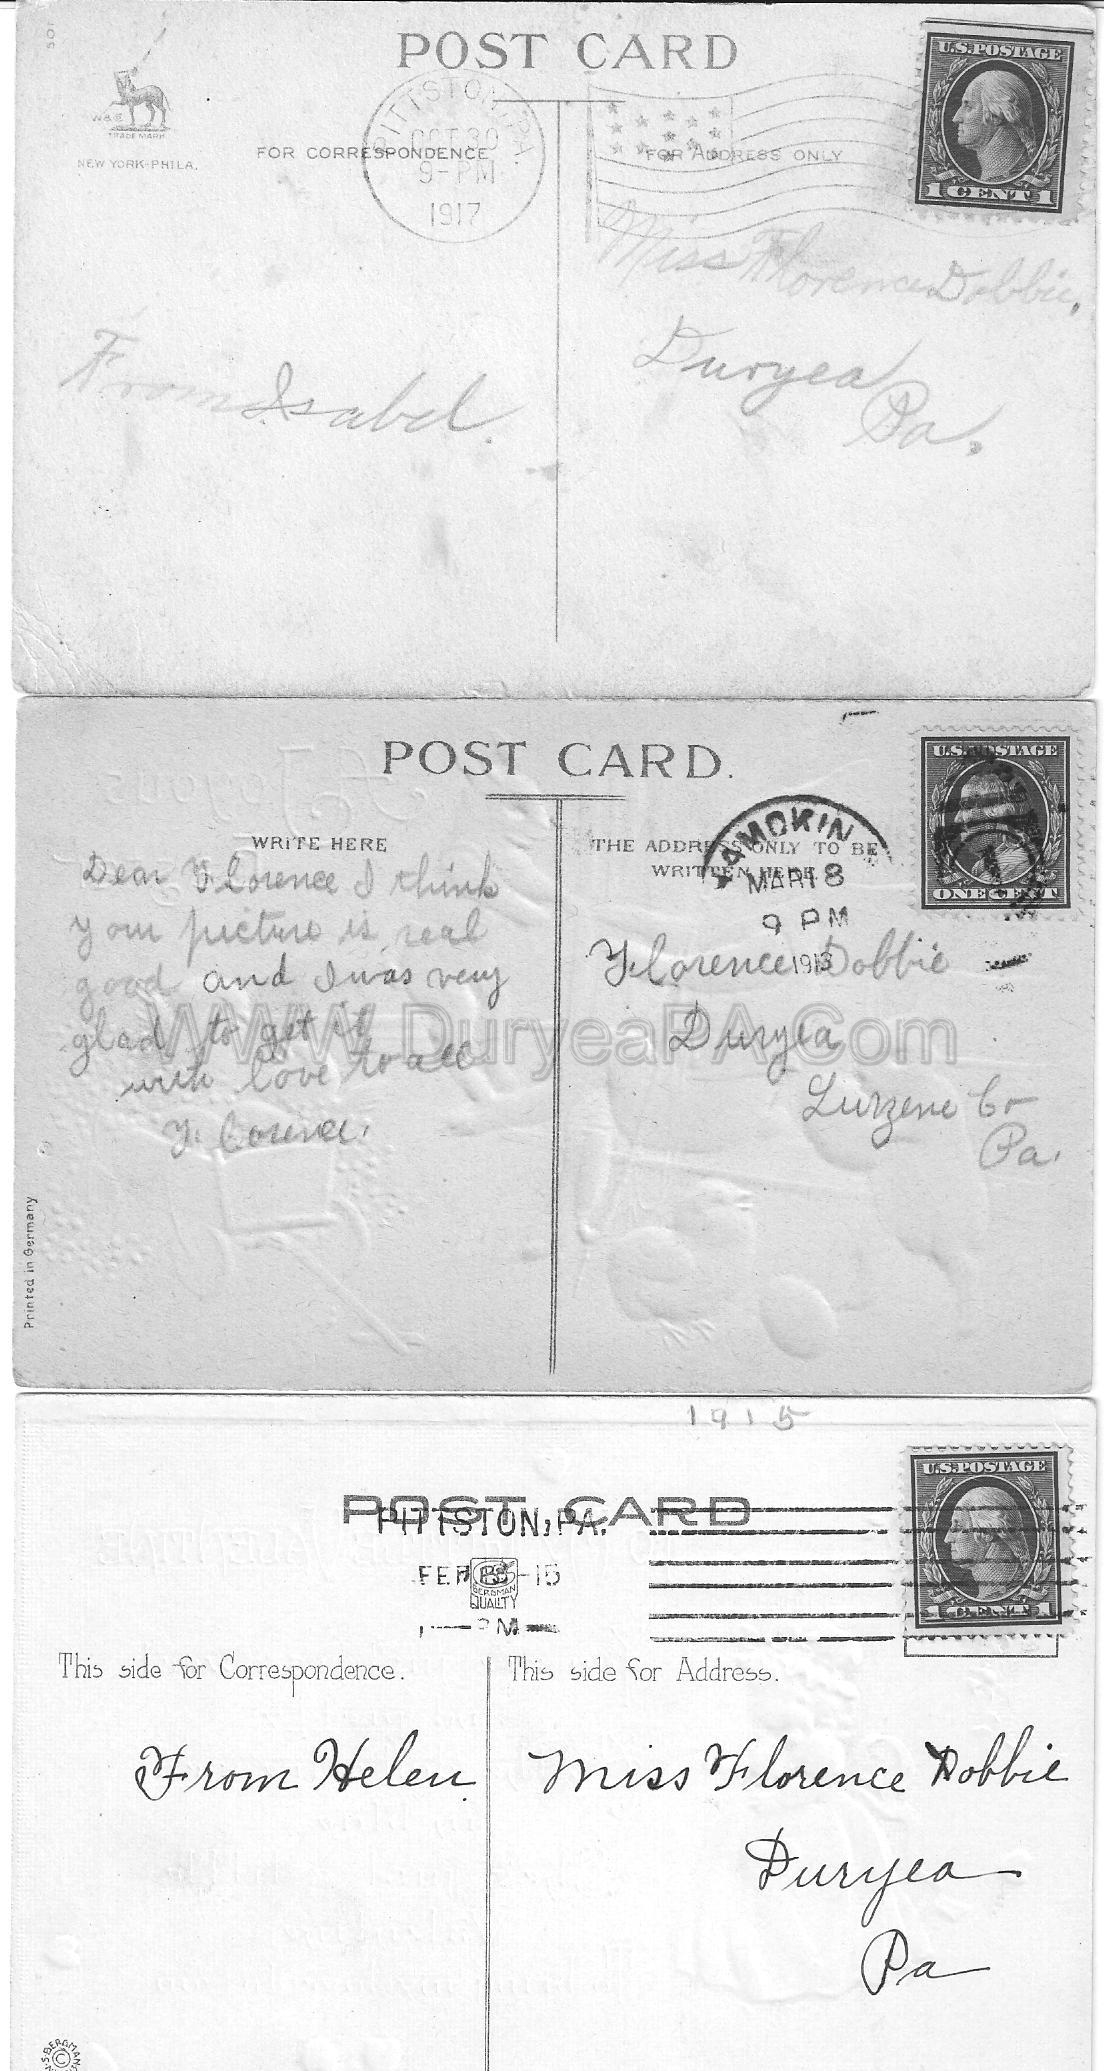 501
POST CARD
W&B
TRADE MARK
NEW YORK-PHILA.
PITTSTON, PA.
OCT 30
9-PM
1917
FOR CORRESPONDENCE
FOR ADDRESS ONLY
U.S. POSTAGE
1 CENT 1
Miss Florence Dobbie,
Duryea
Pa.
From Isabel.
POST CARD.
WRITE HERE
THE ADDRESS ONLY TO BE
WRITTEN HERE.
AMOKIN
MAR 18
9 PM
1913
U.S. POSTAGE
ONE CENT
Dear Florence I think
your picture is real
good and I was very
glad to get it
with love to all
Florence.
Florence Dobbie
Duryea
Luzzene Co
Pa.
WWW.DuryeaPA.Com
Printed in Germany
1915
POST CARD
PITTSTON, PA.
FEB -15
BERGMAN
QUALITY
U.S. POSTAGE
1 CENT 1
This side for Correspondence.
This side for Address.
From Helen
Miss Florence Dobbie
Duryea
Pa
S. BERGMAN
©